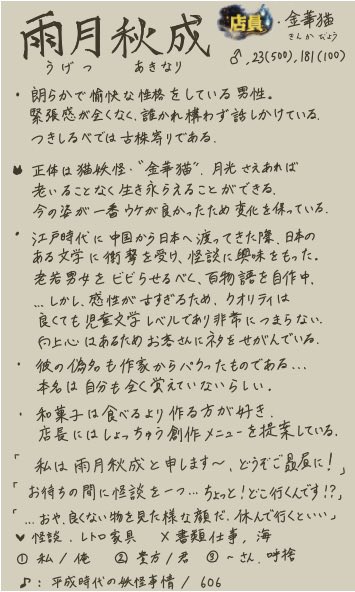 雨月秋成
店員・金華猫
うげつ あきなり
きんかびょう
♂, 23(500), 181(100)
・朗らかで愉快な性格をしている男性。
緊張感が全くなく、誰かれ構わず話しかけている。
つきしるべでは古株寄りである。
正体は猫妖怪・"金華猫"。月光さえあれば
老いることなく生き永らえることができる。
今の姿が一番ウケが良かったため変化を保っている。
・江戸時代に中国から日本へ渡ってきた際、日本の
ある文学に衝撃を受け、怪談に興味をもった。
老若男女をビビらせるべく、百物語を自作中。
…しかし、感性が古すぎるため、クオリティは
良くても児童文学レベルであり非常につまらない。
向上心はあるためお客さんにネタをせがんでいる。
・彼の偽名も作家からパクったものである…
本名は自分も全く覚えていないらしい。
・和菓子は食べるより作る方が好き。
店長にはしょっちゅう創作メニューを提案している。
「私は雨月秋成と申します〜、どうぞご贔屓に!」
「お待ちの間に怪談を一つ…ちょっと!どこ行くんです!?」
「…おや、良くない物を見た様な顔だ。休んで行くといい」
♥ 怪談、レトロ家具 ×書類仕事、海
① 私/俺 ② 貴方/君 ③ 〜さん、呼捨
♪:平成時代の妖怪事情/606